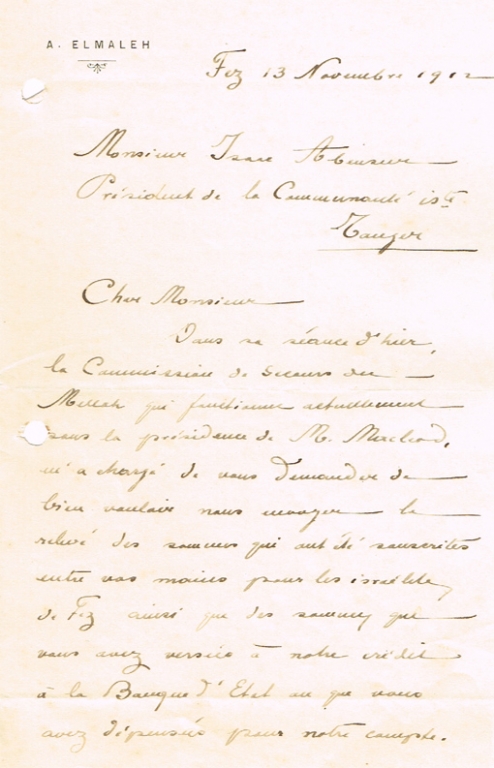 A. ELMALEH
Fez 13 Novembre 1912
Monsieur Isaac Abensur
Président de la Communauté iste
Tanger
Cher Monsieur
Dans sa séance d'hier,
la Commission de Secours du
Mellah qui fonctionne actuellement
sous la présidence de M. Macleod,
m'a chargé de vous demander de
bien vouloir nous envoyer le
relevé des sommes qui ont été souscrites
entre vos mains pour les israélites
de Fez ainsi que des sommes que
vous avez versées à notre crédit
à la Banque d'Etat ou que vous
avez dépensées pour notre compte.